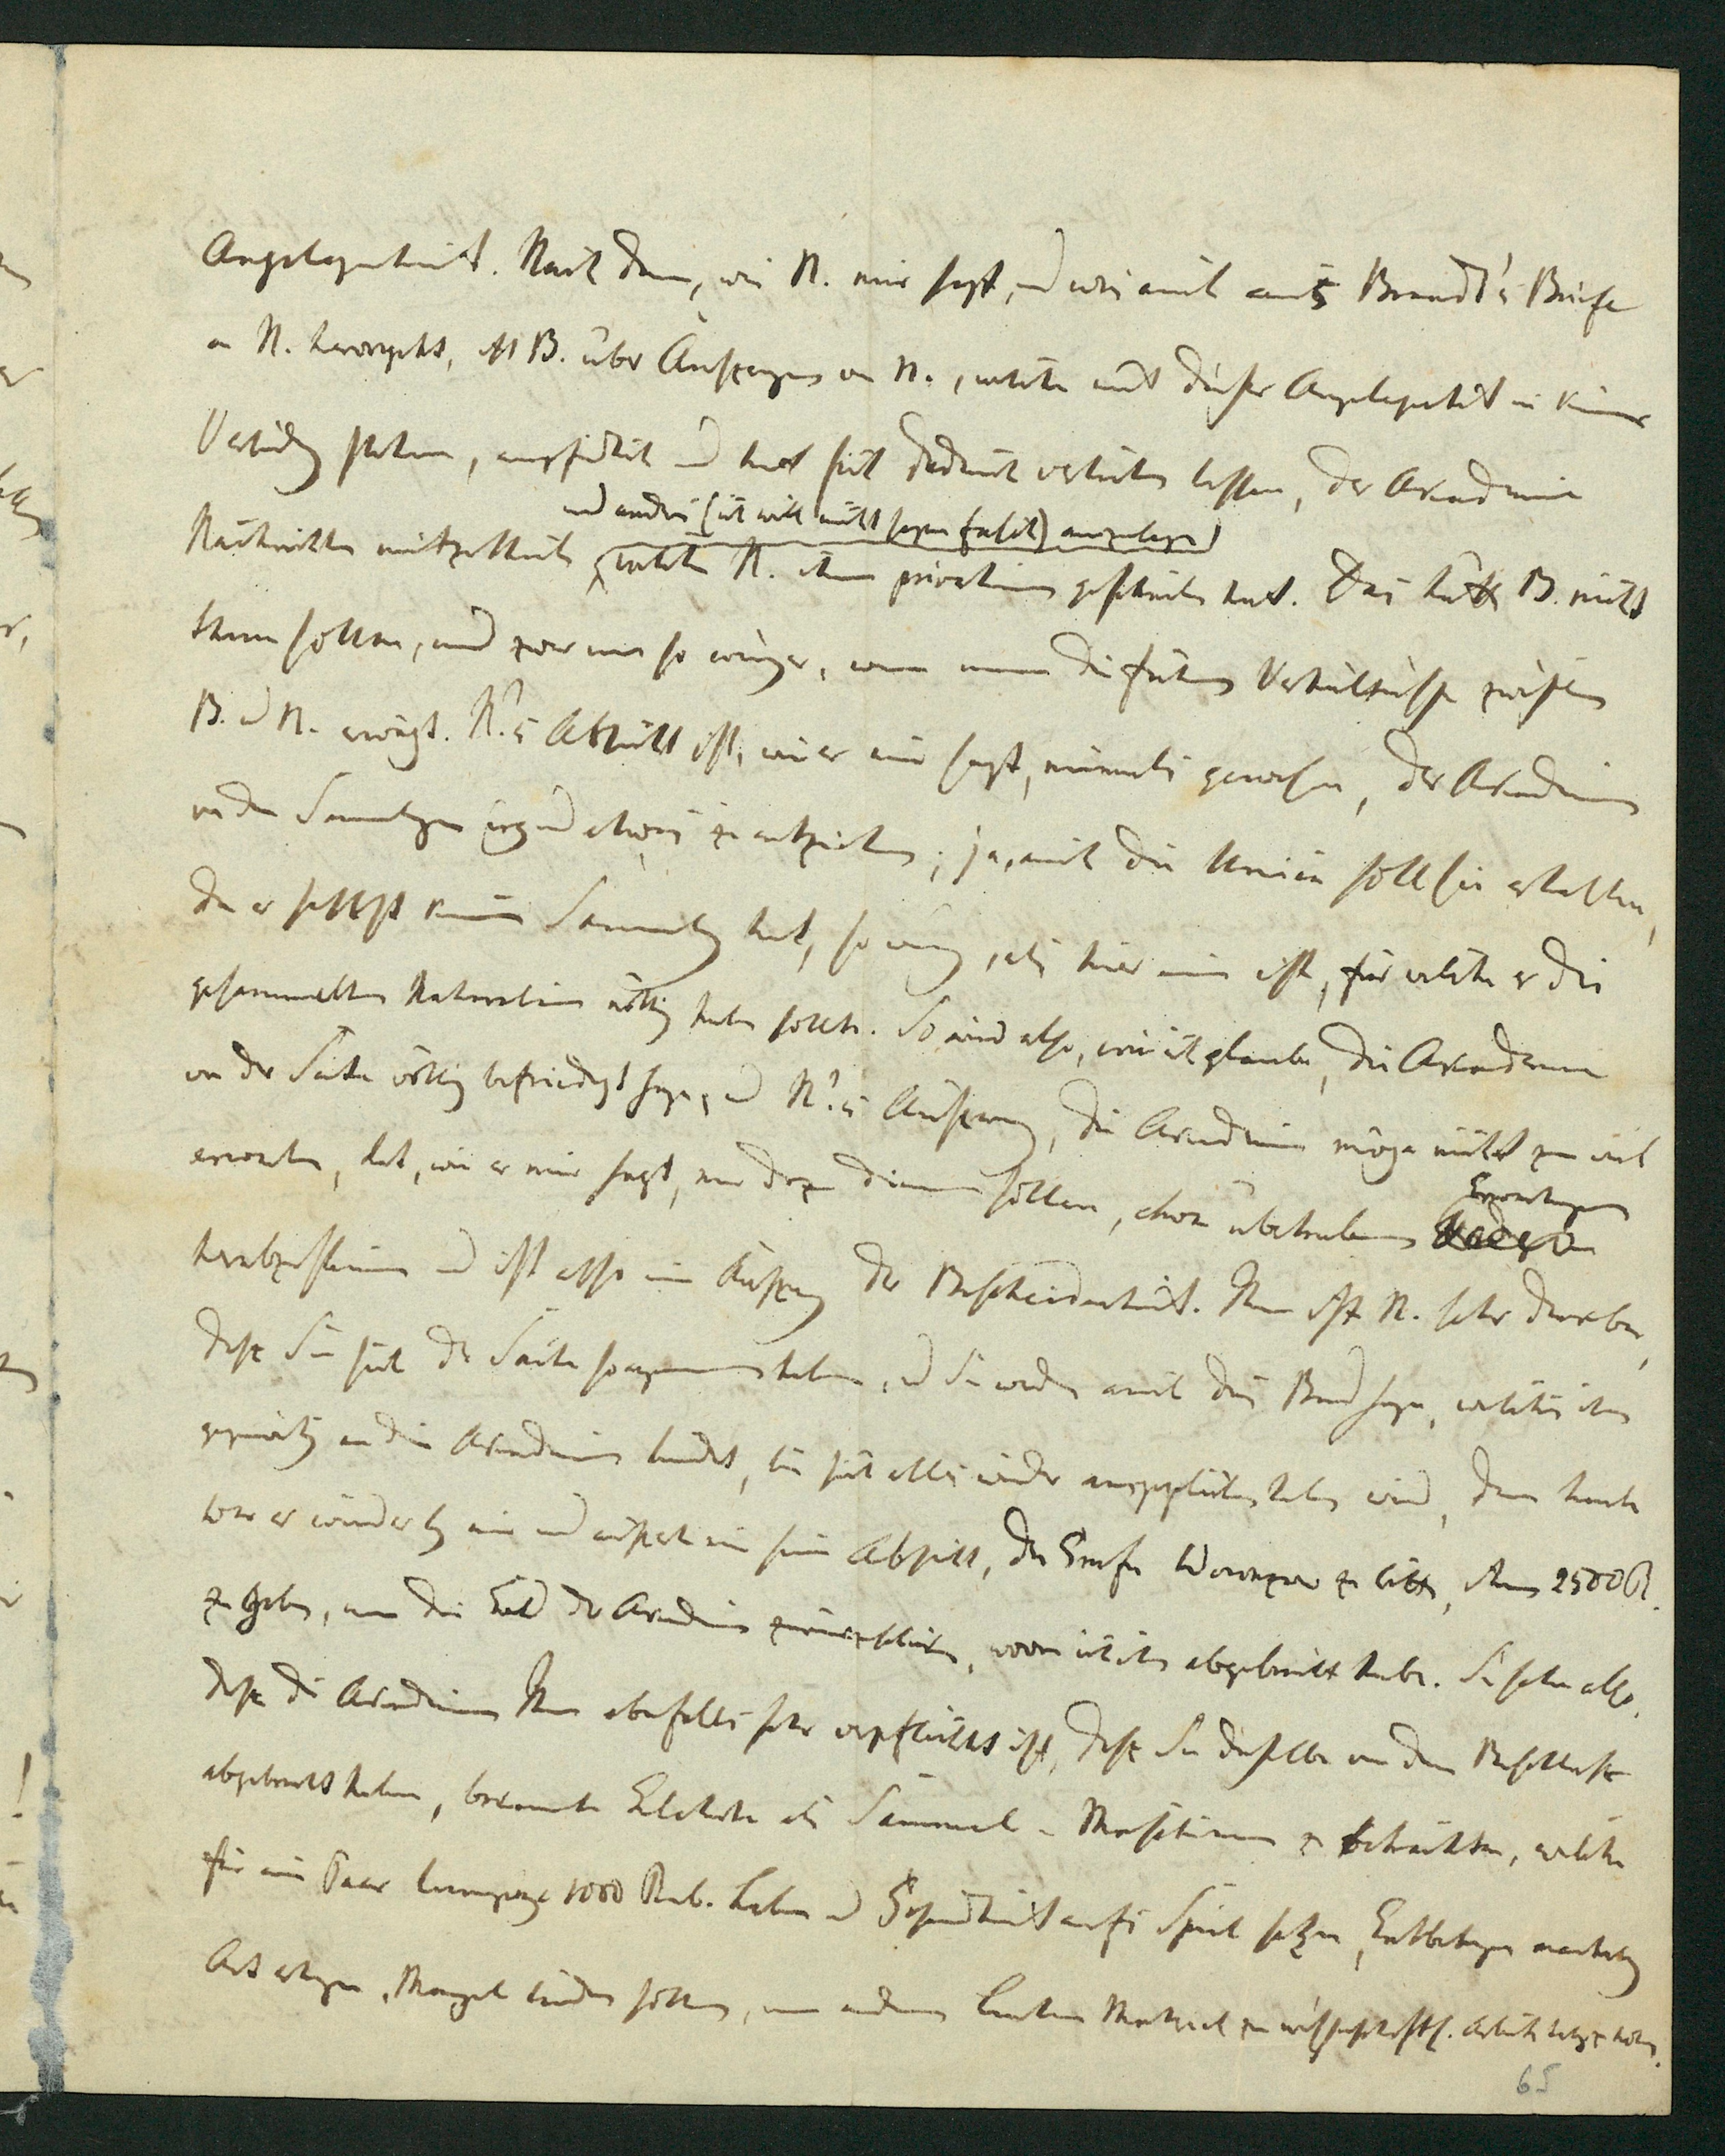 Angelegenheit. Nach dem, wie N. mir sagt, und wie auch aus Brandt's Briefe
an N. hervorgeht, ist B. über Äußerungen von N., welche mit dieser Angelegenheit in keiner
Verbindung stehen, empfindlich und hat sich dadurch verleiten lassen, der Akademie
und anders (ich will nicht sagen falsch) auszulegen
Nachrichten mitzutheilen, welche N. ihm privatim geschrieben hat. Das hätte B. nicht
thun sollen, und zwar um so weniger, wenn man die frühern Verhältnisse zwischen
B. und N. erwägt. N.'s Absicht ist, wie er mir sagt, niemals gewesen, der Akademie
von den Sammlungen irgend etwas zu entziehen; ja, auch die Unica soll sie erhalten,
da er selbst keine Sammlung hat, so wenig, als hier eine ist, für welche er die
gesammelten Naturalien nöthig haben sollte. So wird also, wie ich glaube, die Akademie
von der Seite völlig befriedigt seyn, und N.'s Äußerung, die Akademie möge nicht zu viel
erwarten, hat, wie er mir sagt, nur dazu dienen sollen, etwa übertriebene
Erwartungen
herabzustimmen und ist also ein Ausdruck der Bescheidenheit. Nun ist N. sehr dankbar,
daß Sie sich der Sache so angenommen haben, und Sie werden auch das Band seyn, welches ihn
gegenwärtig an die Akademie bindet, bis sich alles wieder ausgeglichen haben wird, denn heute
war er wüthend und äußerte mir seine Absicht, den Grafen Woronzow zu bitten, ihm 2500 R.
zu geben, um das Geld der Akademie zurückzuschicken, wovon ich ihn abgebracht habe. Sie sehen also,
daß die Akademie Ihnen ebenfalls sehr verpflichtet ist, daß Sie dieselbe von dem Beschlusse
abgebracht haben, bekannte Gelehrte als Sammel-Maschinen zu betrachten, welche
für ein Paar lumpige 1000 Rub. Leben und Gesundheit auf's Spiel setzen, Entbehrungen mancherley
Art ertragen, Mangel leiden sollen, um andern Leuten Material zu wissenschaftl. Arbeiten herbeyzuholen.
65